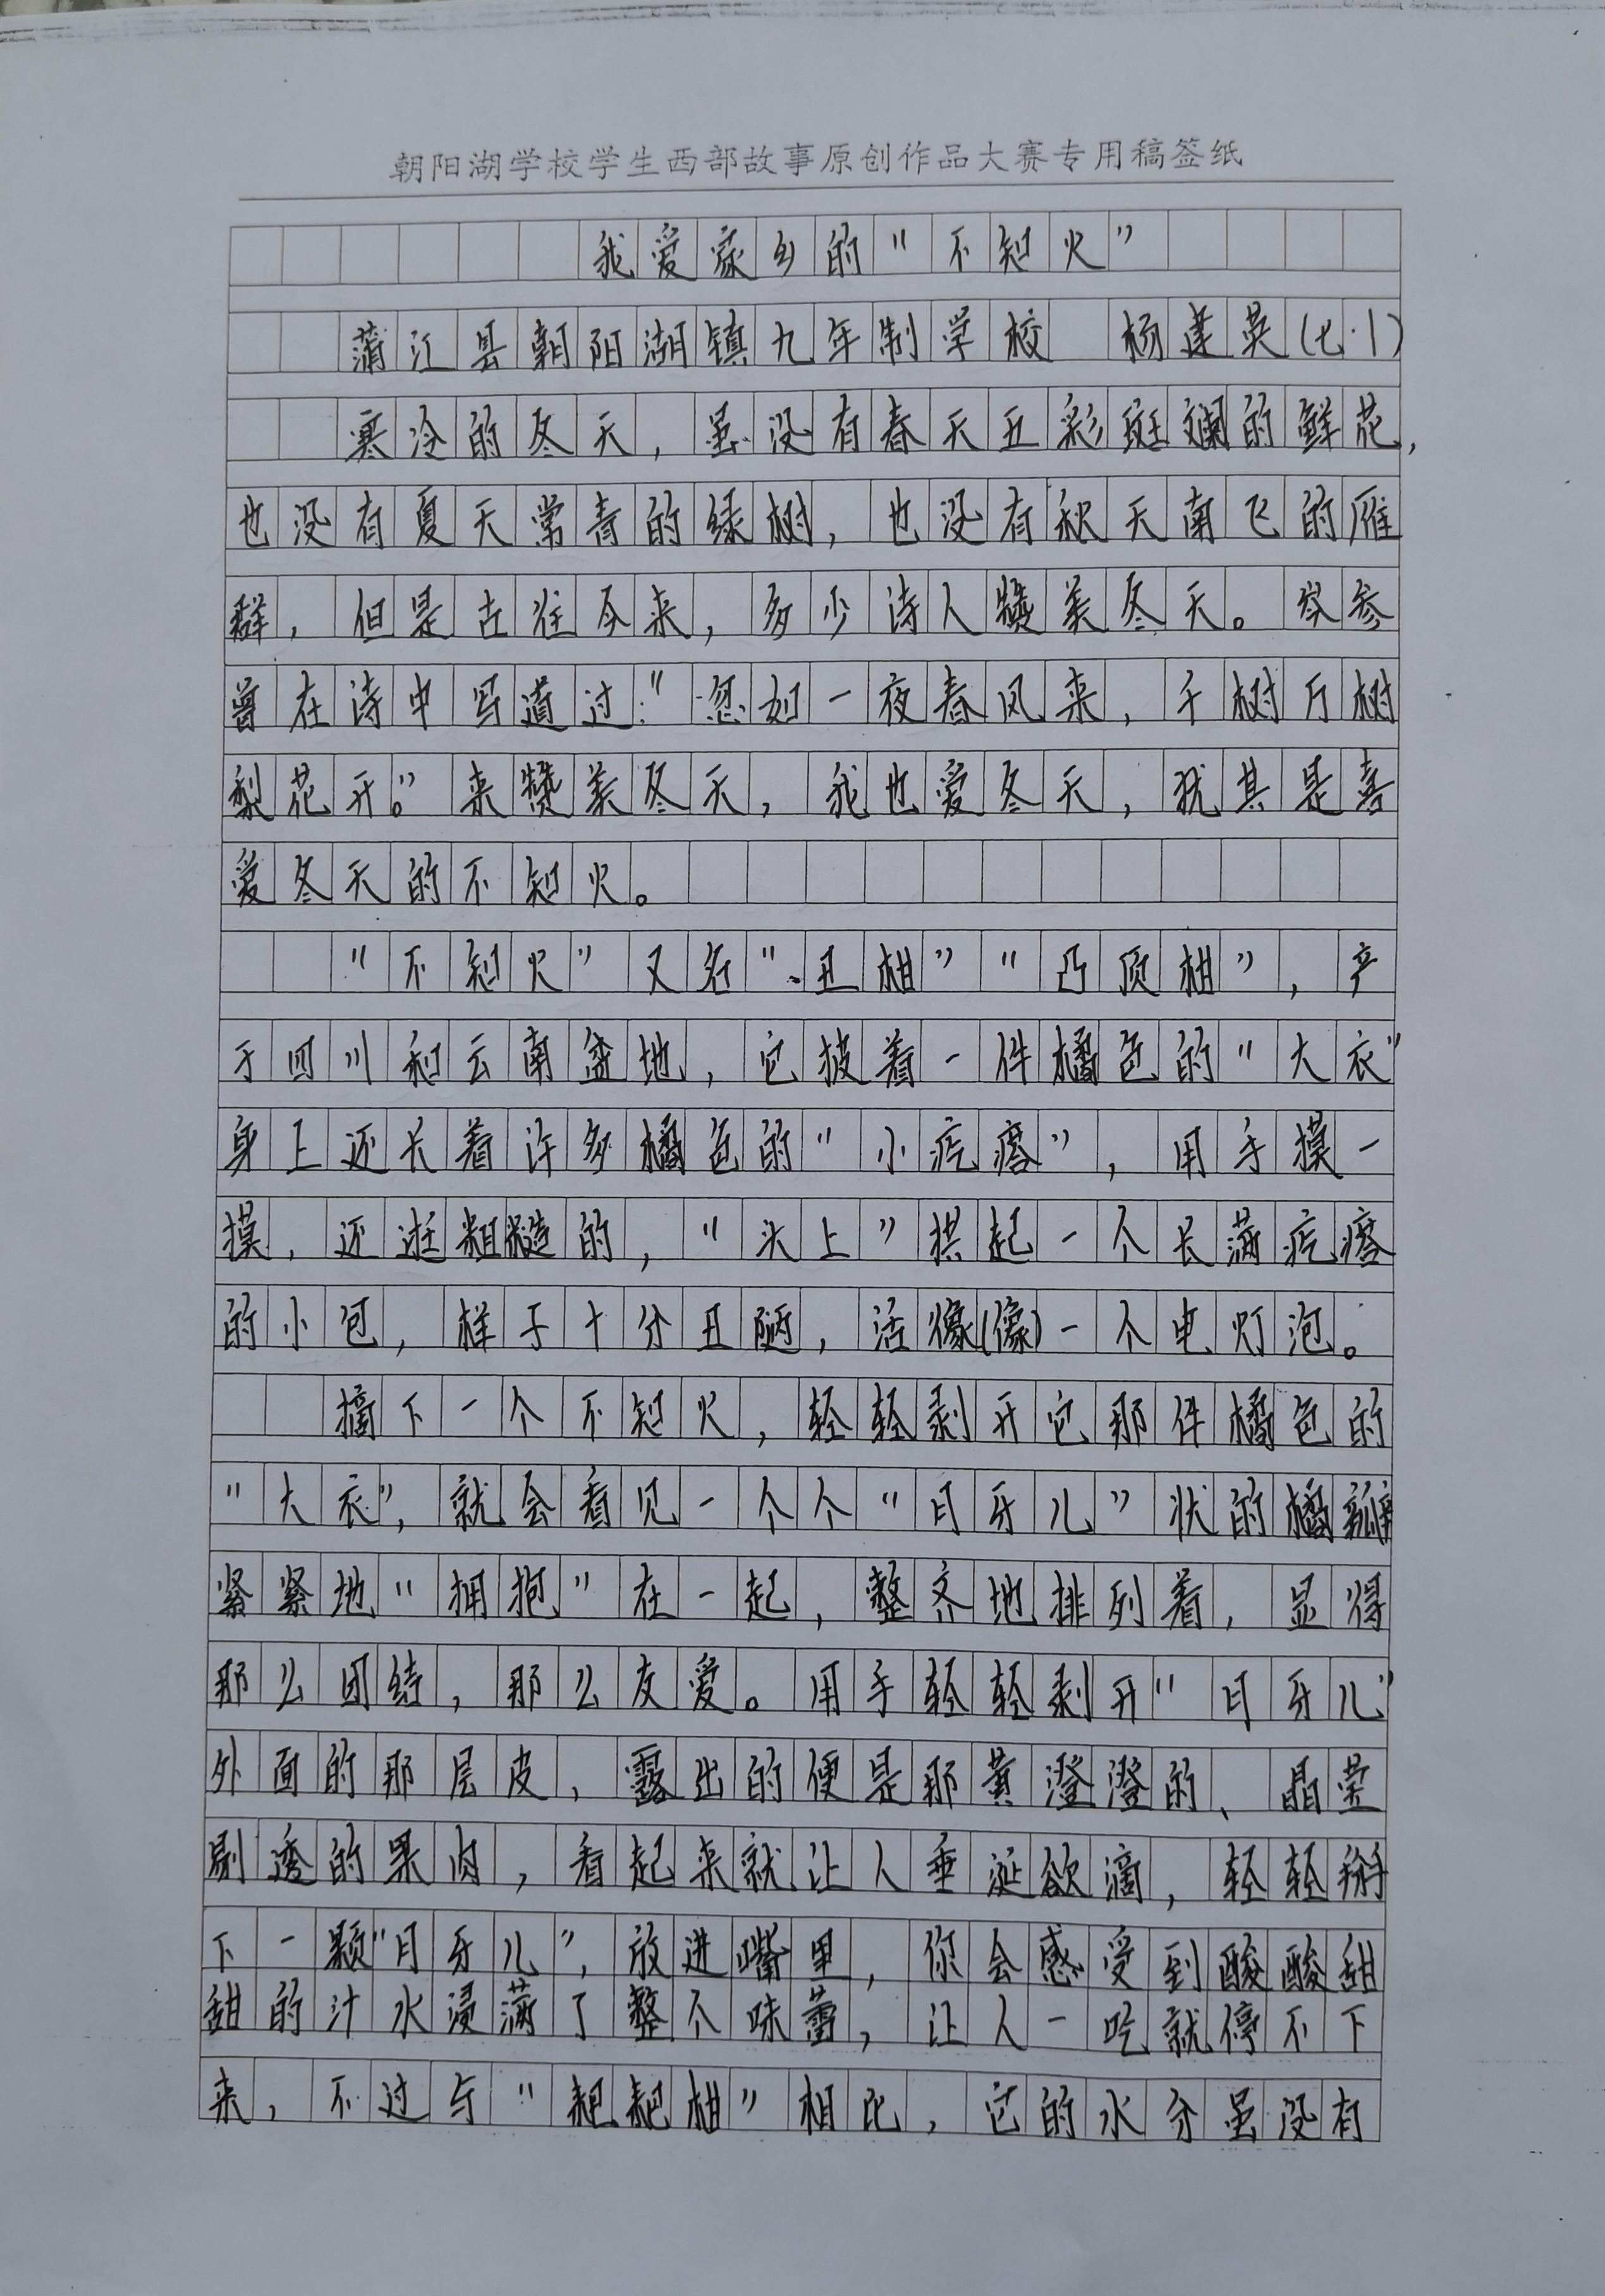 朝阳湖学校学生西部故事原创作品大赛专用稿签纸
我爱家乡的“不知火”
蒲江县朝阳湖镇九年制学校 杨莲英(七·1)
寒冷的冬天，虽没有春天五彩斑斓的鲜花，
也没有夏天常青的绿树，也没有秋天南飞的雁
群，但是古往今来，多少诗人赞美冬天。岑参
曾在诗中写道过：“忽如一夜春风来，千树万树
梨花开。”来赞美冬天，我也爱冬天，犹其是喜
爱冬天的不知火。
“不知火”又名“丑柑”“凸顶柑”，产
于四川和云南盆地，它披着一件橘色的“大衣”
身上还长着许多橘色的“小疙瘩”，用手摸一
摸，还逛粗糙的，“头上”拱起一个长满疙瘩
的小包，样子十分丑陋，活像(像)一个电灯泡。
摘下一个不知火，轻轻剥开它那件橘色的
“大衣”，就会看见一个个“月牙儿”状的橘瓣
紧紧地“拥抱”在一起，整齐地排列着，显得
那么团结，那么友爱。用手轻轻剥开“月牙儿”
外面的那层皮，露出的便是那黄澄澄的、晶莹
剔透的果肉，看起来就让人垂涎欲滴，轻轻掰
下一颗“月牙儿”，放进嘴里，你会感受到酸酸甜
甜的汁水浸满了整个味蕾，让人一吃就停不下
来，不过与“耙耙柑”相比，它的水分虽没有